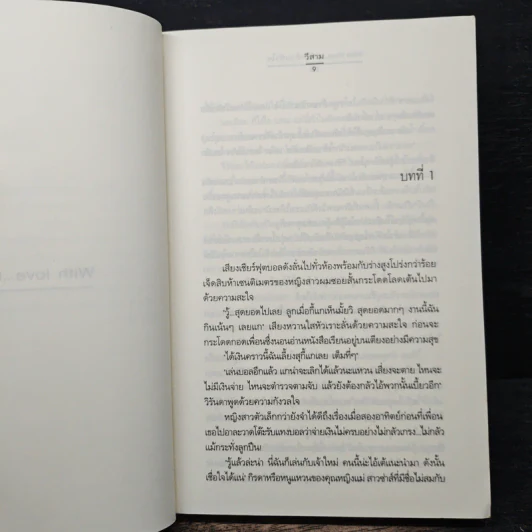 วีสาม
9
บทที่ 1
เสียงเชียร์ฟุตบอลดังลั่นไปทั่วห้องพร้อมกับร่างสูงโปร่งกว่าร้อย
เจ็ดสิบห้าเซนติเมตรของหญิงสาวผมซอยสั้นกระโดดโลดเต้นไปมา
ด้วยความสะใจ
"รู้..สุดยอดไปเลย ลูกเมื่อกี้แกเห็นมั้ยวิ สุดยอดมากๆ งานนี้ฉัน
กินเน้นๆ เลยแก" เสียงหวานใสหัวเราะลั่นด้วยความสะใจ ก่อนจะ
กระโดดกอดเพื่อนซึ่งนอนอ่านหนังสือเรียนอยู่บนเตียงอย่างมีความสุข
"ได้เงินคราวนี้ฉันเลี้ยงสุกี้แกเลย เต็มที่ๆ"
"เล่นบอลอีกแล้ว แกน่าจะเลิกได้แล้วนะแหวน เสี่ยงจะตาย ไหนจะ
ไม่มีเงินจ่าย ไหนจะตำรวจตามจับ แล้วยังต้องกลัวไอ้พวกนั้นเบี้ยวอีก"
วิรันดาพูดด้วยความกังวลใจ
หญิงสาวตัวเล็กกว่ายังจำได้ดีถึงเรื่องเมื่อสองอาทิตย์ก่อนที่เพื่อน
เธอไปอาละวาดโต๊ะรับแทงบอลว่าจ่ายเงินไม่ครบอย่างไม่กลัวเกรง..ไม่กลัว
แม้กระทั่งลูกปืน!
"รู้แล้วล่ะน่า นี่ฉันก็เล่นกับเจ้าใหม่ คนนี้น่ะไอ้เต้แนะนำมา ดังนั้น
เชื่อใจได้แน่" กิรดาหรือหนูแหวนของคุณหญิงแม่ สาวซ่าส์ที่มีชื่อไม่สมกับ
With love